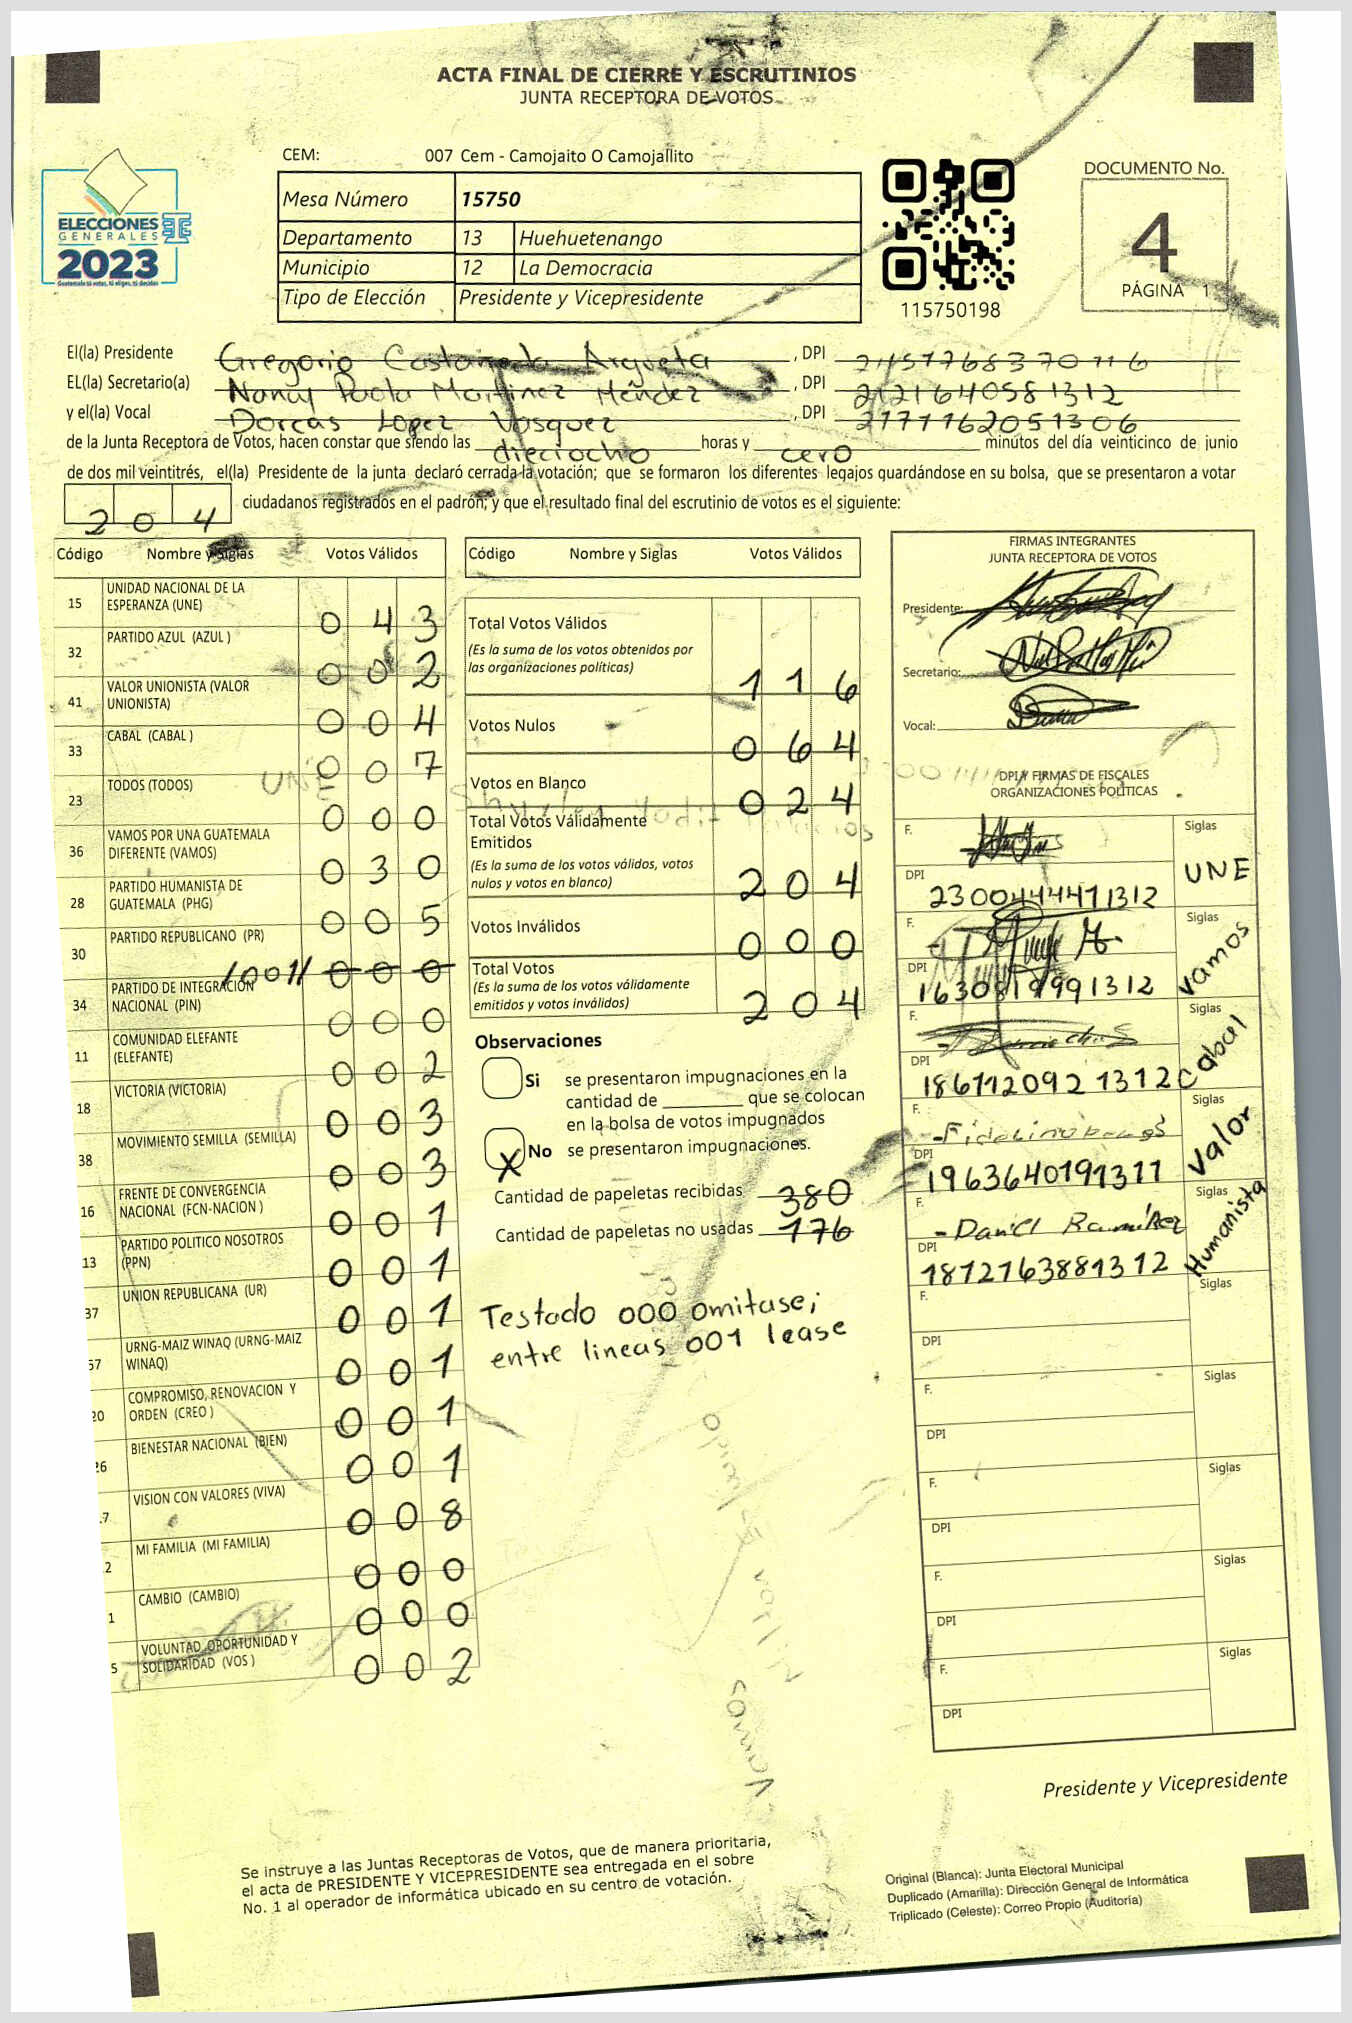 ACTA FINAL DE CIERRE Y ESCRUTINIOS
JUNTA RECEPTORA DE VOTOS
CEM: 007 Cem - Camojaito O Camojallito
ELECCIONES
GENERALES
2023
Guatemala tú votas, tú eliges, tú decides
Mesa Número 15750
Departamento 13 Huehuetenango
Municipio 12 La Democracia
Tipo de Elección Presidente y Vicepresidente
115750198
DOCUMENTO No.
4
PÁGINA 1
El(la) Presidente Gregorio Castañeda Argueta, DPI
EL(la) Secretario(a) Nancy Paola Martinez Méndez, DPI 2121640581312
y el(la) Vocal Dorcas Lopez Vasquez, DPI 2177162051306
de la Junta Receptora de Votos, hacen constar que siendo las dieciocho horas y cero minutos del día veinticinco de junio
de dos mil veintitrés, el(la) Presidente de la junta declaró cerrada la votación; que se formaron los diferentes legajos guardándose en su bolsa, que se presentaron a votar
204 ciudadanos registrados en el padrón; y que el resultado final del escrutinio de votos es el siguiente:
Código Nombre y Siglas Votos Válidos
15 UNIDAD NACIONAL DE LA ESPERANZA (UNE) 043
32 PARTIDO AZUL (AZUL ) 002
41 VALOR UNIONISTA (VALOR UNIONISTA) 004
33 CABAL (CABAL ) 007
23 TODOS (TODOS) 000
36 VAMOS POR UNA GUATEMALA DIFERENTE (VAMOS) 030
28 PARTIDO HUMANISTA DE GUATEMALA (PHG) 005
30 PARTIDO REPUBLICANO (PR) /001/ 000
34 PARTIDO DE INTEGRACIÓN NACIONAL (PIN) 000
11 COMUNIDAD ELEFANTE (ELEFANTE) 002
18 VICTORIA (VICTORIA) 003
38 MOVIMIENTO SEMILLA (SEMILLA) 003
16 FRENTE DE CONVERGENCIA NACIONAL (FCN-NACION ) 001
13 PARTIDO POLITICO NOSOTROS (PPN) 001
37 UNION REPUBLICANA (UR) 001
57 URNG-MAIZ WINAQ (URNG-MAIZ WINAQ) 001
20 COMPROMISO, RENOVACION Y ORDEN (CREO ) 001
26 BIENESTAR NACIONAL (BIEN) 001
7 VISION CON VALORES (VIVA) 008
2 MI FAMILIA (MI FAMILIA) 000
1 CAMBIO (CAMBIO) 000
5 VOLUNTAD, OPORTUNIDAD Y SOLIDARIDAD (VOS ) 002
Código Nombre y Siglas Votos Válidos
Total Votos Válidos 116
(Es la suma de los votos obtenidos por
las organizaciones políticas)
Votos Nulos 064
Votos en Blanco 024
Total Votos Válidamente
Emitidos 204
(Es la suma de los votos válidos, votos
nulos y votos en blanco)
Votos Inválidos 000
Total Votos 204
(Es la suma de los votos válidamente
emitidos y votos inválidos)
Observaciones
Si se presentaron impugnaciones en la
cantidad de ________ que se colocan
en la bolsa de votos impugnados
X No se presentaron impugnaciones.
Cantidad de papeletas recibidas 380
Cantidad de papeletas no usadas 176
Testado 000 omitase;
entre lineas 001 lease
FIRMAS INTEGRANTES
JUNTA RECEPTORA DE VOTOS
Presidente:
Secretario:
Vocal:
DPI Y FIRMAS DE FISCALES
ORGANIZACIONES POLÍTICAS
F. Siglas UNE
DPI 2300444471312
F. Siglas Vamos
DPI 1630819991312
F. Siglas Cabal
DPI 1867120921312
F. Siglas Valor
DPI 1963640191311
F. Daniel Ramírez Siglas Humanista
DPI 1812763881312
F. Siglas
DPI
F. Siglas
DPI
F. Siglas
DPI
F. Siglas
DPI
F. Siglas
DPI
Presidente y Vicepresidente
Se instruye a las Juntas Receptoras de Votos, que de manera prioritaria,
el acta de PRESIDENTE Y VICEPRESIDENTE sea entregada en el sobre
No. 1 al operador de informática ubicado en su centro de votación.
Original (Blanca): Junta Electoral Municipal
Duplicado (Amarilla): Dirección General de Informática
Triplicado (Celeste): Correo Propio (Auditoría)